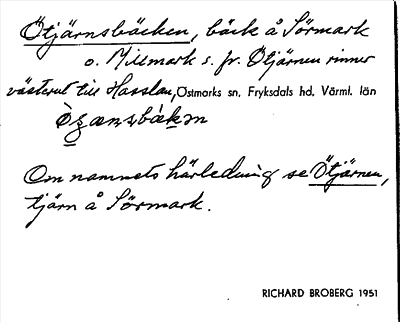 Ötjärnsbäcken, bäck å Sörmark
o. Millmark s. fr. Ötjärnen rinner
västerut till Hasslan, Östmarks sn, Fryksdals hd, Värml. län
Om namnets härledning se Ötjärnen,
tjärn å Sörmark.
RICHARD BROBERG 1951